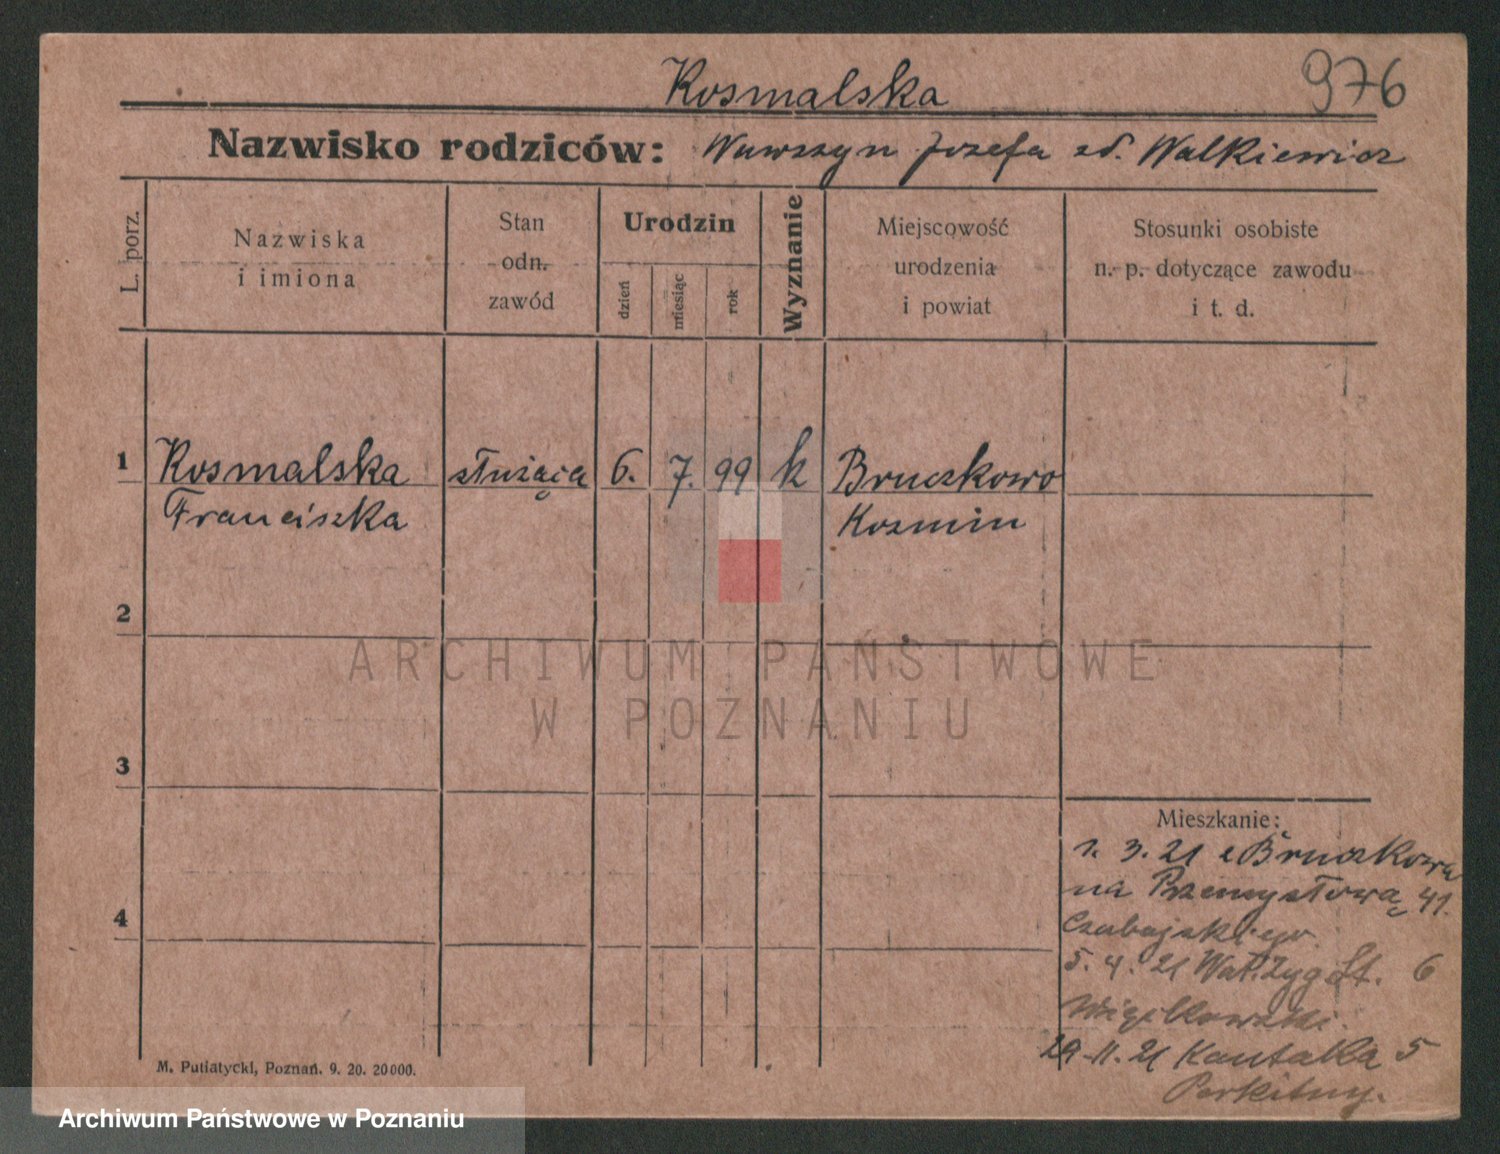 Kosmalska
976
Nazwisko rodziców: Wawrzyn Józefa zd. Walkiewicz
L. porz.
Nazwiska
i imiona
Stan
odn.
zawód
Urodzin
dzień
miesiąc
rok
Wyznanie
Miejscowość
urodzenia
i powiat
Stosunki osobiste
n. p. dotyczące zawodu
i t. d.
1 Kosmalska służąca 6. 7. 99 k Bruczkowo
Franciszka Kozmin
2
3
4
Mieszkanie:
1. 3. 21 z Bruczkowa
na Przemysłową 41.
Czabajskiego.
5. 4. 21 Wał. Zyg. St. 6
29-11. 21 Kantaka 5
ARCHIWUM PAŃSTWOWE
W POZNANIU
M. Putiatycki, Poznań. 9. 20. 20000.
Archiwum Państwowe w Poznaniu